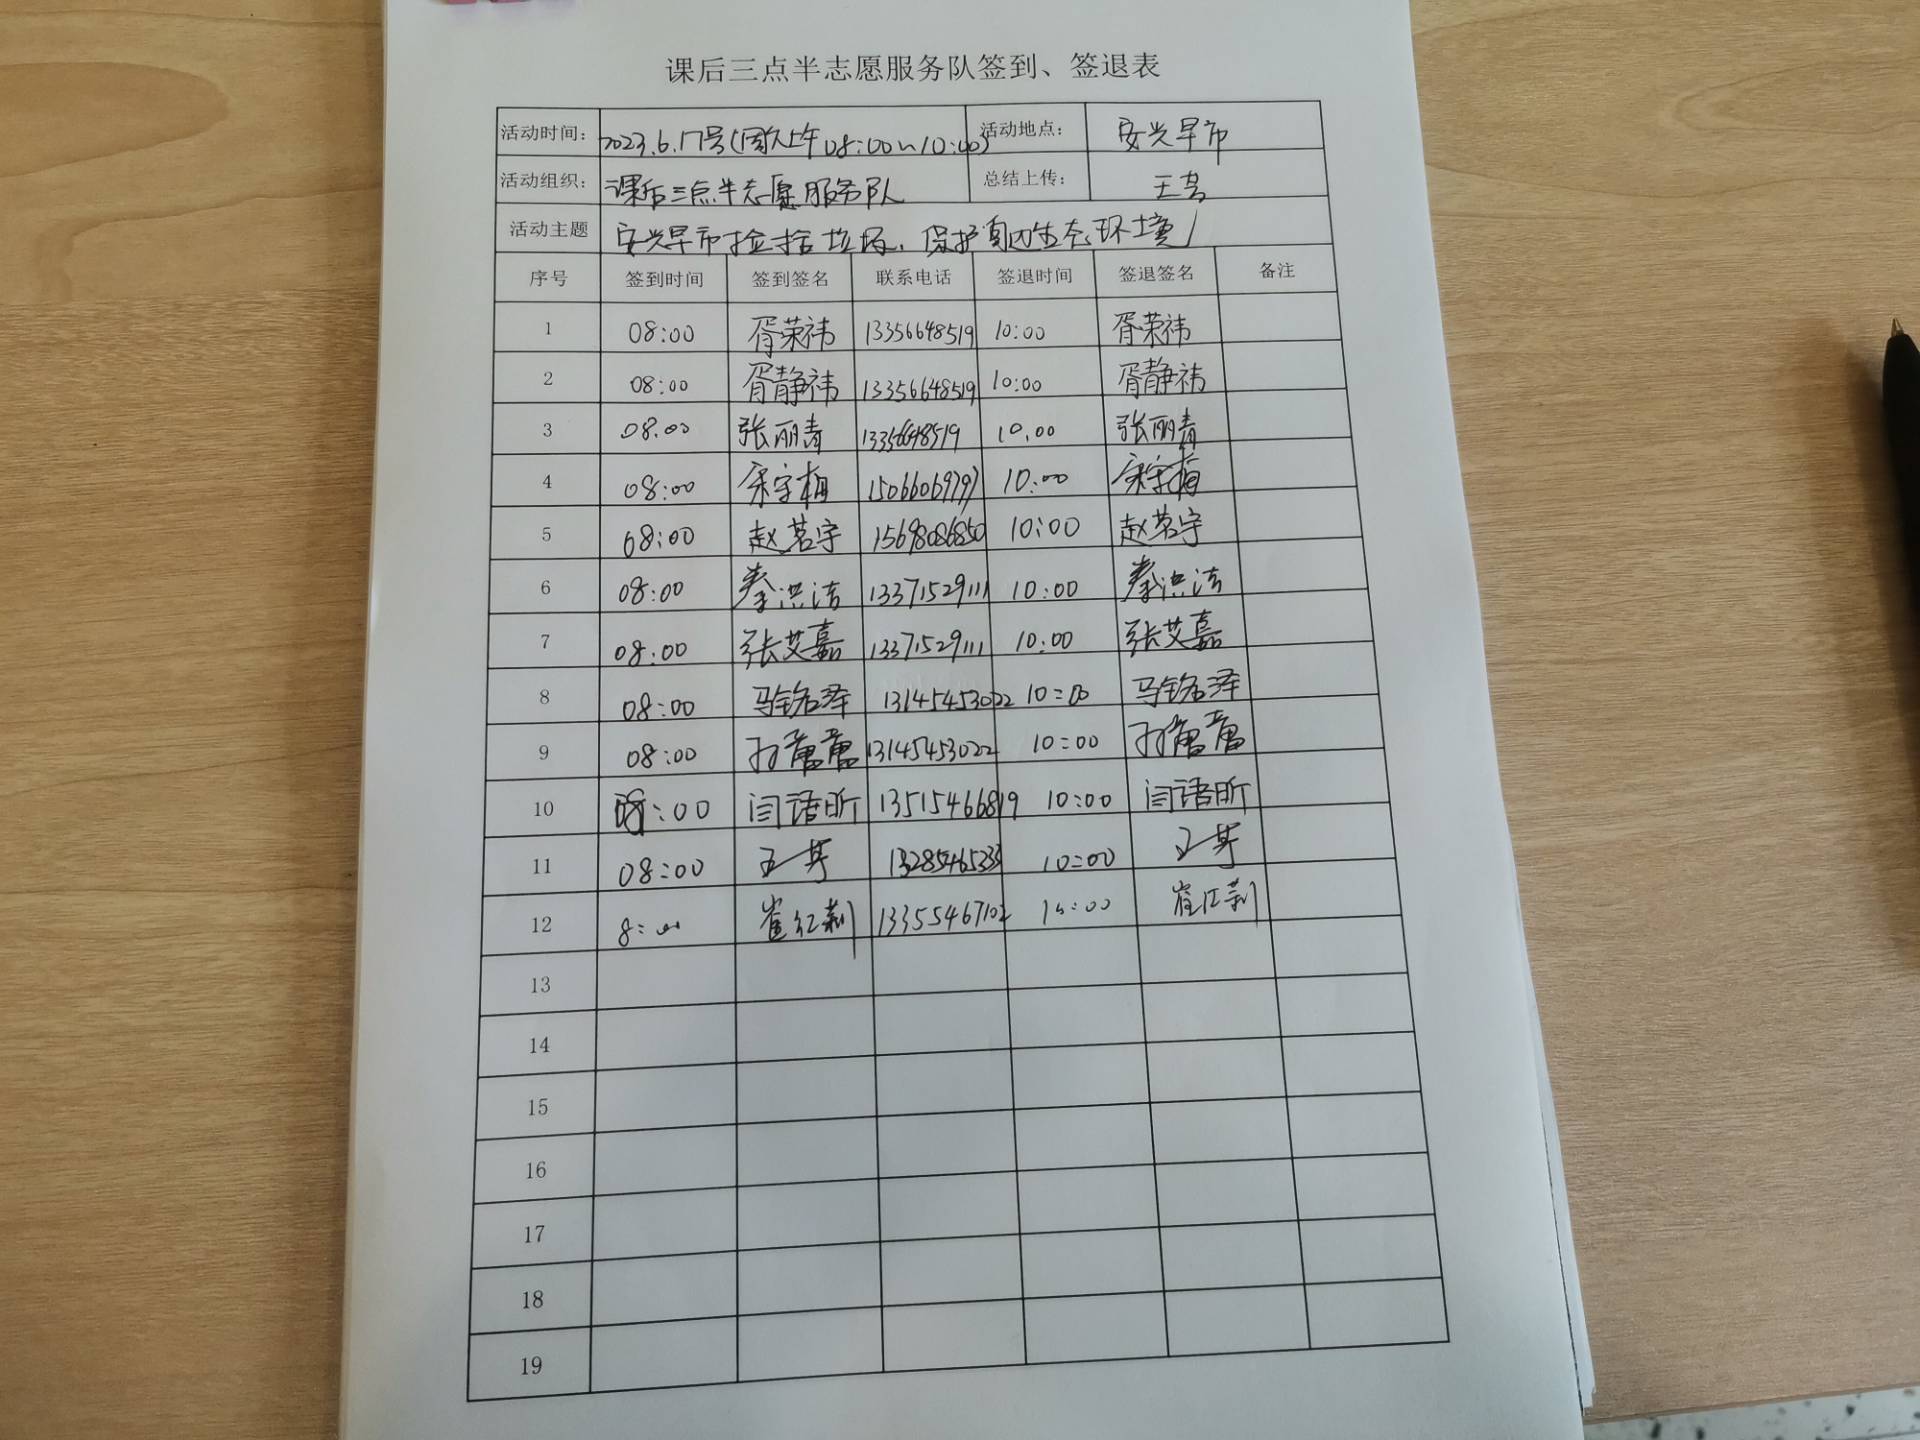 课后三点半志愿服务队签到、签退表
活动时间： 2023.6.17号(周六上午08:00~10:00) 活动地点： 安兴早市
活动组织： 课后三点半志愿服务队 总结上传： 王芸
活动主题 安兴早市捡拾垃圾、保护周边生态环境
序号 签到时间 签到签名 联系电话 签退时间 签退签名 备注
1 08:00 胥荣祎 13356648519 10:00 胥荣祎
2 08:00 胥静祎 13356648519 10:00 胥静祎
3 08.00 张丽青 13356648519 10.00 张丽青
4 08:00 宋字梅 15066069797 10:00 宋字梅
5 08:00 赵茗宇 15698086850 10:00 赵茗宇
6 08:00 秦洪洁 13371529111 10:00 秦洪洁
7 08:00 张艾嘉 13371529111 10:00 张艾嘉
8 08:00 马铭泽 13145453022 10:00 马铭泽
9 08:00 13145453022 10:00
10 08:00 闫语昕 13515466819 10:00 闫语昕
11 08:00 10:00
12 8:00 崔红莉 13355467102 10:00 崔红莉
13
14
15
16
17
18
19